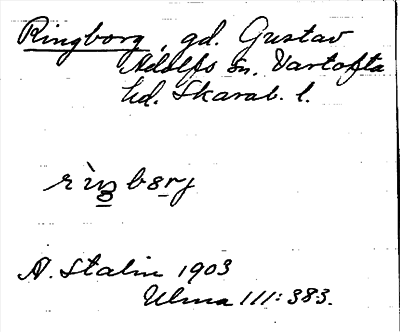 Ringborg, gd. Gustav
Adolfs sn. Vartofta
hd. Skarab. l.
rìŋbərj
A. Stalin 1903
Ulma 111:383.